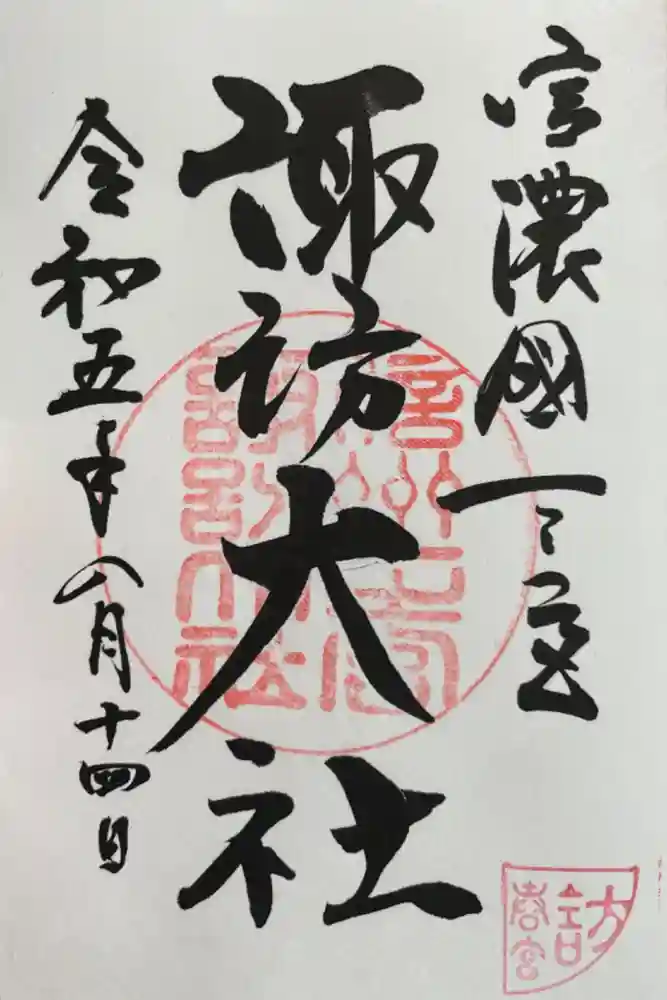 信濃國一之宮
諏訪大社
令和五年八月十四日
諏訪
春宮